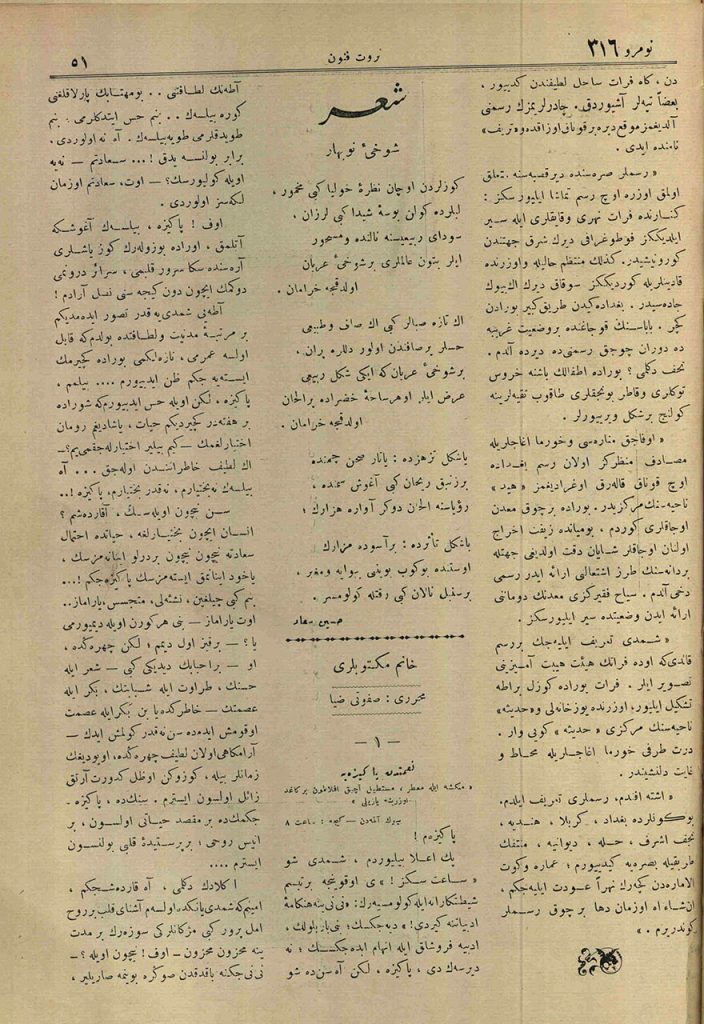 نومرو ٣١٦
ثروت فنون
٥١
دن ، كاه فرات ساحل لطيفندن كديیور ،
بعضاً تپه‌لر آشیوردق . چادرلریمزك رسمنى
آلدیغمز موقع دیره بر قوناق اوزاقده و « تریف »
نامنده ایدى .
« رسملر صره‌سنده دیر قصبه‌سنه
اولمق اوزره اوچ رسم تماشا ایلیورسكز :
كنارنده فرات نهرى وقایقلرى ایله سیر
ایلدیككز فوطوغرافى دیرك شرق جهتندن
كورونیشیدر . كذلك منتظم واوزرنده
قادینلریله كوردیككز سوقاق دیرك اك بیوك
جاده‌سیدر . بغداده كیدن طریق كبیر بورادن
كچر . باباسنك قوجاغنده بر وضعیت غریبه
ده دوران چوجق رسمنى ده دیرده آلدم .
تحف دكلمى ؟ بوراده اطفالك باشنه خروس
توكلرى وقاطر بونجقلرى طاقوب تقیه‌لرینه
كولنج بر شكل ویریورلر .
« اوفاجق مناره‌سى وخورما اغاجلریله
مصادف منظركز اولان رسم بغداده
اوچ قوناق قاله‌رق اوغرادیغمز « هیت »
ناحیه‌سنك مركزیدر . بوراده بر چوق معدن
اوجاقلرى كوردم ، بومیانده زفت اخراج
اولنان اوجاقلر شایان دقت اولدیغى جهتله
بر دانه‌سنك طرز اشتعالنى ارائه ایدر رسمى
دخى آلدم . سیاح فقیركزى معدنك دوماننى
ارائه ایدن وضعیتده سیر ایلیورسكز .
« شمدى تعریف ایلیه‌جك بر رسم
قالدى كه اوده فراتك هیئت هیبت آمیزینى
تصویر ایلر . فرات بوراده كوزل بر اطه
تشكیل ایلیور، اوزرنده یوز خانه‌لى و « حدیثه »
ناحیه‌سنك مركزى « حدیثه » كویى وار .
درت طرفى خورما اغاجلریله محاط و
غایت دلنشیندر .
« اشته افندم، رسملرى تعریف ایلدم.
بوكونلرده بغداد ، كربلا ، هندیه ،
نجف اشرف ، حله ، دیوانیه ، منتفك
طریقیله بصره‌یه كیدییورم ؛ عماره وكوت
الاماره‌دن كچه‌رك نهراً عودت ایلیه‌جكم ،
ان‌شاء الله اوزمان دها بر چوق رسملر
كوندریرم . »
شعر
شوخىٔ نوبهار
كوزلردن اوچان نظرهٔ خولیا كبى مخمور ،
لبلرده كولن بوسهٔ شیدا كبى لرزان ،
سوداى ربیعیسنه نالنده ومسحور
ایلر بتون عالملرى بر شوخىٔ عریان
اولدقجه خرامان .
اك تازه صبالر كبى اك صاف وطبیعى
حسلر بر صافندن اولور دللره پران ،
بر شوخىٔ عریان كه ایكى شكل ربیعى
عرض ایلر اوهر ساحهٔ خضراده پر الحان
اولدقجه خرامان .
یاشكل تزهزده : یاتار صحن چمنده
بر زنبق ریحان كبى آغوش سمنده ،
رؤیاسنه الحان دوكر آواره هزارك ؛
یاشكل تأثرده : بر آسوده مزارك
اوستنده بوكوب بوینى بیوایه ومغبر ،
بر سنبل نالان كبى رقتله كولومسر .
حسین سعاد
خانم مكتوبلرى
محررى : صفوتى ضیا
— ١ —
نعمتدن پاكیزه‌یه
« منكشه ایله معطر ، مستطیل آچیق افلاطون بر كاغد
اوزرینه یازیلى »
بیوك آطه‌دن — كیجه : ساعت ٨
پاكیزه‌م !
پك اعلا بیلیورم ، شمدى شو
« ساعت سكز ! » ى اوقونجه بر تبسم
شیطنتكارانه ایله كولومسیه‌رك : « نى نى ینه هنكامهٔ
ادبیاتنه كیردى ! » دیه‌جكسك ؛ بنى بازبلولك ،
ادبیه فروشلق ایله اتهام ایده‌جكسك ؛ نه
دیرسه‌ك دى ، پاكیزه ، لكن آه سن ده شو
آطه‌نك لطافتنى . . بو مهتابك پارلاقلغنى
كوره بیلسه‌ك . . بنم حس ایتدكلرمى . بنم
طویدقلرمى طویه بیلسه‌ك . آه نه اولوردى .
برابر بولنسه یدق !... سعادتم — نه‌یه
اویله كولیورسك ؟ — اوت، سعادتم اوزمان
لكه‌سز اولوردى .
اوف ! پاكیزه ، بیلسه‌ك آغوشكه
آتلمق ، اوراده بوزوله‌رك كوز یاشلرى
آره‌سنده سكا سرور قلبمى ، سرائر درونمى
دوكمك ایچون دون كیجه سنى نصل آرادم !
آطه‌نى شمدى یه قدر تصور ایده‌مدیكم
بر مرتبهٔ مدنیت ولطافتده بولدم كه قابل
اولسه عمرمى ، تازه‌لكمى بوراده كچیرمك
ایسته‌یه جكم ظن ایدییورم .... بیلمم ،
پاكیزه ، لكن اویله حس ایدییورم كه شوراده
بر هفته‌در كچیردیكم حیات ، یاشادیغم رومان
اختیارلغمك — كیم بیلیر اختیارله‌جقمى‌یم ؟ —
اك لطیف خاطراتندن اوله‌جق ... آه
بیلسه‌ك نه بختیارم ، نه قدر بختیارم ، پاكیزه !..
سن نیچون اویله سك ، آقارده‌شم ؟
انسان ایچون بختیارلغه ، حیاتده احتمال
سعادته نیچون نیچون بر درلو اینانه‌مزسك ،
یاخود اینانمق ایسته‌مزسك پاكیزه‌جكم !...
بم كبى چیلغین ، نشئه‌لى ، متجسس، یاراماز..
اوت یاراماز — بنى هر كورن اویله دیمیورمى
یا ؟ — بر قیز اول دیمم ؛ لكن چهره‌كده ،
او — بر احبابك دیدیكى كبى — شعر ایله
حسنك ، طراوت ایله شبابتك ، بكر ایله
عصمتك — خاطركده‌یا بن بكر ایله عصمت
اوقومش ایدم ده سن نه‌قدر كولمش ایدك —
آرامكاهى اولان لطیف چهره‌كده ، اویودیغك
زمانلر بیله ، كوزوكن اوظل كدورت آرتق
زائل اولسون ایسترم . سنك ده ، پاكیزه —
جكمك ده بر مقصد حیاتى اولسون ، بر
انیس روحى ؛ بر پرستیدهٔ قلبى بولنسون
ایسترم ....
اكلادك دكلمى ، آه قارده‌شجكم ،
امینم كه شمدى یانكده اولسه‌م آشناى قلب وروح
امل پرور كبى مژكانلر كى سوزه‌رك بر مدت
ینه محزون محزون — اوف ! نیچون اویله ؟ —
نى نى جكنه باقدقدن صوكره بوینمه صاریلیر ،